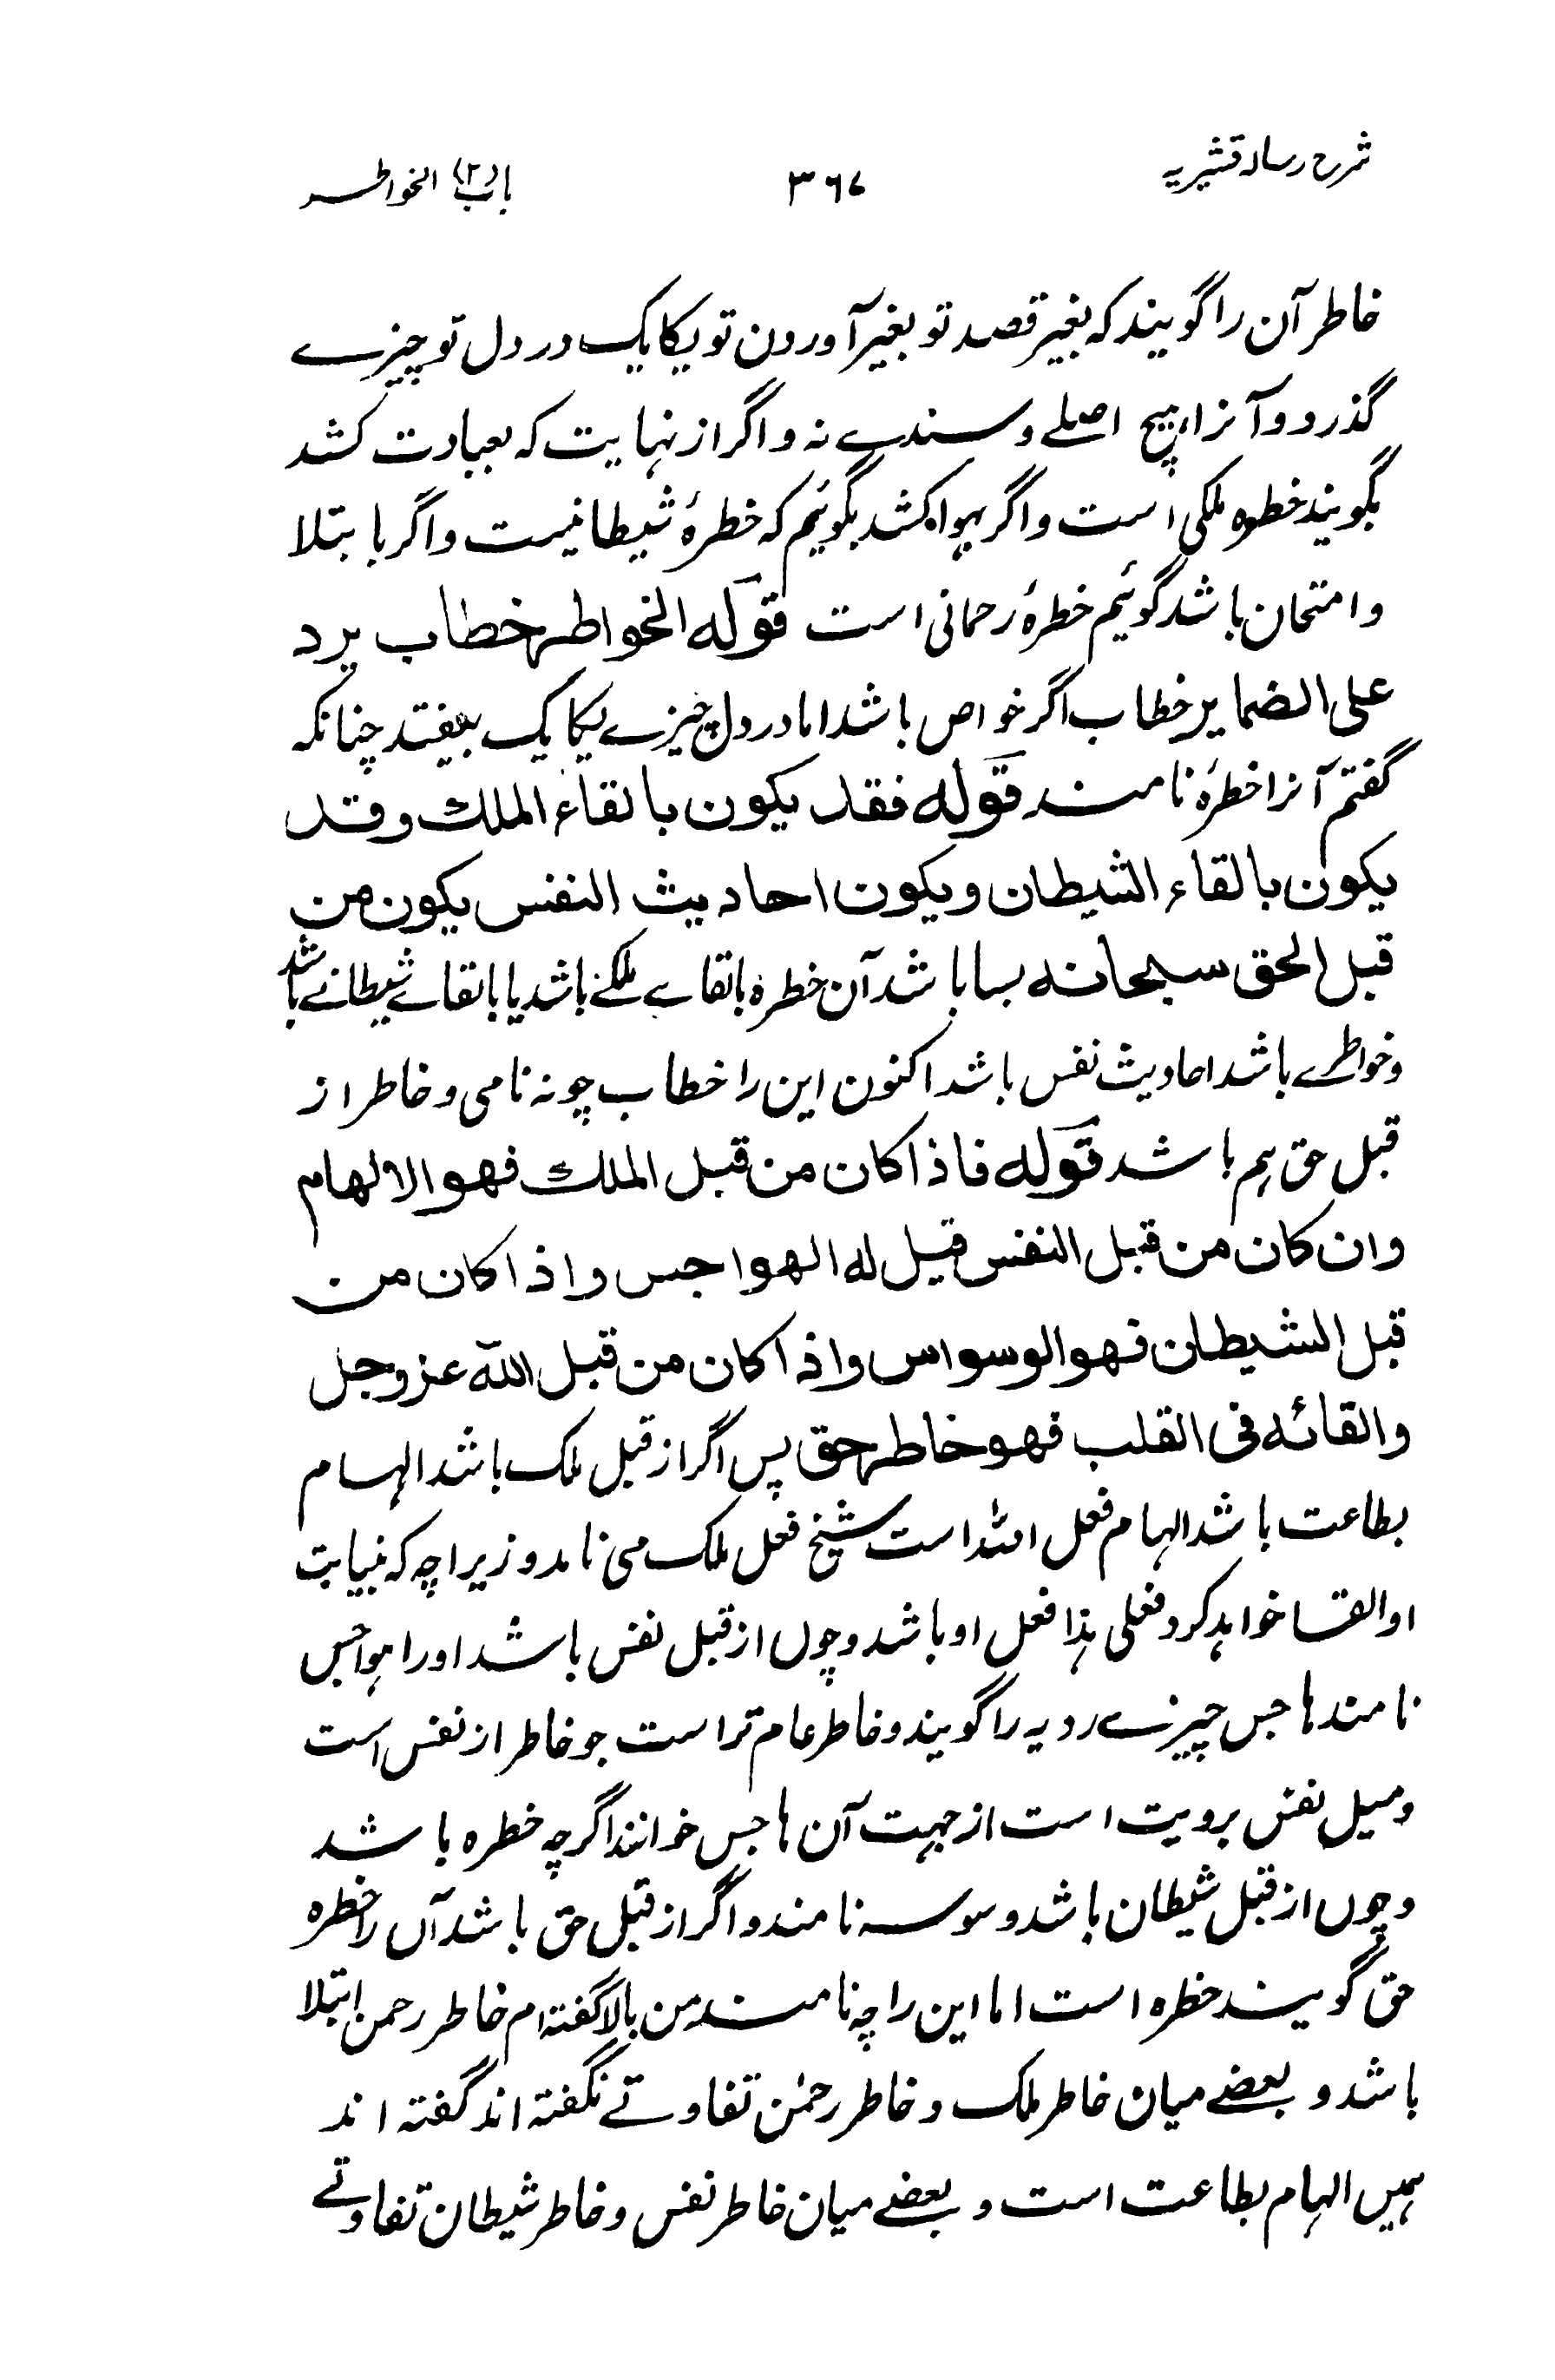 شرح رسالہ قشیریہ
۳۶۷
باب (۲) الخواطر
خاطر آن را گویند کہ بغیر قصد تو بغیر آوردن تو یکایک در دل تو چیزے
گذرد و آنرا ہیچ اصلے و سندے نہ و اگر از نہایت کہ بعبادت کشد
بگویند خطرہ ملکی است و اگر بہواء کشد بگوئیم کہ خطرۂ شیطانیست و اگر بابتلا
و امتحان باشد گوئیم خطرۂ رحمانی است قولہ الخواطر خطاب یرد
علی الضمایر خطاب اگر خواص باشد اما در دل چیزے یکایک بیفتد چنانکہ
گفتم آنرا خطرۂ نامند قولہ فقد یکون بالقاء الملك وقد
یکون بالقاء الشیطان ویکون احادیث النفس یکون من
قبل الحق سبحانہ بسا باشد آن خطرہ بالقاے ملکے باشد یا بالقاے شیطانے باشد
و خواطرے باشد احادیث نفس باشد اکنون این را خطاب چونہ نامی و خاطر از
قبل حق ہم باشد قولہ فاذا کان من قبل الملك فهو الالهام
وان کان من قبل النفس قیل له الهواجس واذا کان من
قبل الشیطان فهو الوسواس واذا کان من قبل اللہ عزوجل
والقائه فی القلب فهو خاطر حق پس اگر از قبل ملک باشد الہام
بطاعت باشد الہام فعل اللہ است شیخ فعل ملک می نامد و زیراچہ کہ نیابت
او القا خواہد کرد فعلی ہذا فعل او باشد و چوں از قبل نفس باشد اورا ہواجس
نامند ہاجس چیزے ردیہ را گویند و خاطر عام تر است جو خاطر از نفس است
و میل نفس برویت است از جہت آن ہاجس خوانند اگرچہ خطرہ باشد
و چوں از قبل شیطان باشد وسوسہ نامند و اگر از قبل حق باشد آں را خطرہ
حق گویند خطرہ است اما این را چہ نامند من بالا گفتہ ام خاطر رحمن ابتلا
باشد و بعضے میان خاطر ملک و خاطر رحمٰن تفاوتے نگفتہ اند گفتہ اند
ہمیں الہام بطاعت است و بعضے میان خاطر نفس و خاطر شیطان تفاوتے